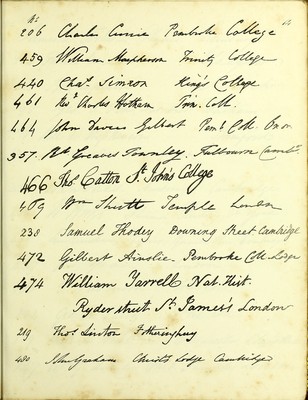 No
206 Charles Currie Pembroke College
459 William Macpherson Trinity College
440 Chas. Simeon King's College
461 Revd Charles Hotham Trin. Coll.
464 John Davies Gilbert Pemb Coll. Oxon
357. R. Greaves Townley. Fulbourn Camb.
466 Thos Catton St John's College
469 Wm Temple London
238 Samuel Thodey Downing Street Cambridge
472 Gilbert Ainslie. Pembroke Coll Lodge
474 William Yarrell Nat. Hist.
Ryder street St James's London
219 Thos Linton Fotheringhay
480 John Graham Christ's Lodge Cambridge